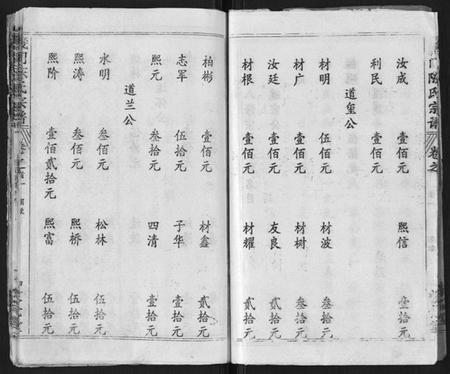 门陈氏宗谱
卷之
汝成 壹佰元 熙信 叁拾元
利民 壹佰元
道玺公
材明 伍佰元 材波 叁拾元
材广 壹佰元 材树 叁拾元
汝廷 壹佰元 友良 贰拾元
材根 壹佰元 材耀 贰拾元
柏彬 壹佰元 材鑫 贰拾元
志军 伍拾元 子华 壹拾元
熙元 叁拾元 四清 壹拾元
道兰公
水明 叁佰元 松林 伍拾元
熙涛 叁佰元 熙桥 伍拾元
熙阶 壹佰贰拾元 熙富 伍拾元
义门陈氏宗谱